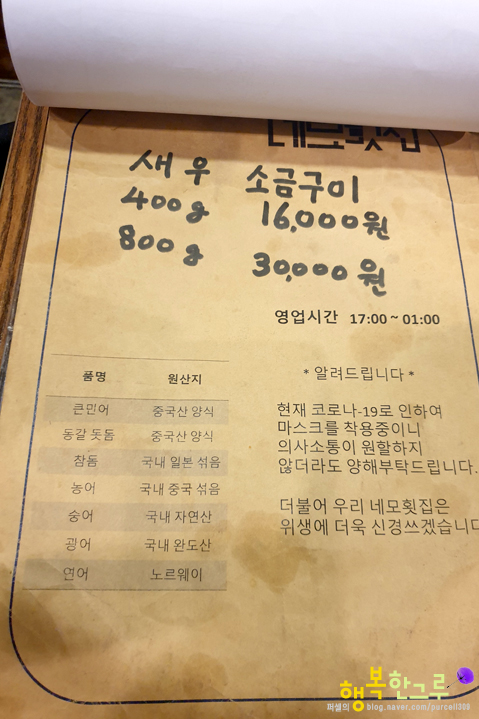 네모횟집
새우 소금구이
400g 16,000원
800g 30,000원
영업시간 17:00 ~ 01:00
품명 원산지
큰민어 중국산 양식
동갈 돗돔 중국산 양식
참돔 국내 일본 섞음
농어 국내 중국 섞음
숭어 국내 자연산
광어 국내 완도산
연어 노르웨이
* 알려드립니다 *
현재 코로나-19로 인하여
마스크를 착용중이니
의사소통이 원할하지
않더라도 양해부탁드립니다.
더불어 우리 네모횟집은
위생에 더욱 신경쓰겠습니다
행복한그루
퍼셀의 blog.naver.com/purcell308